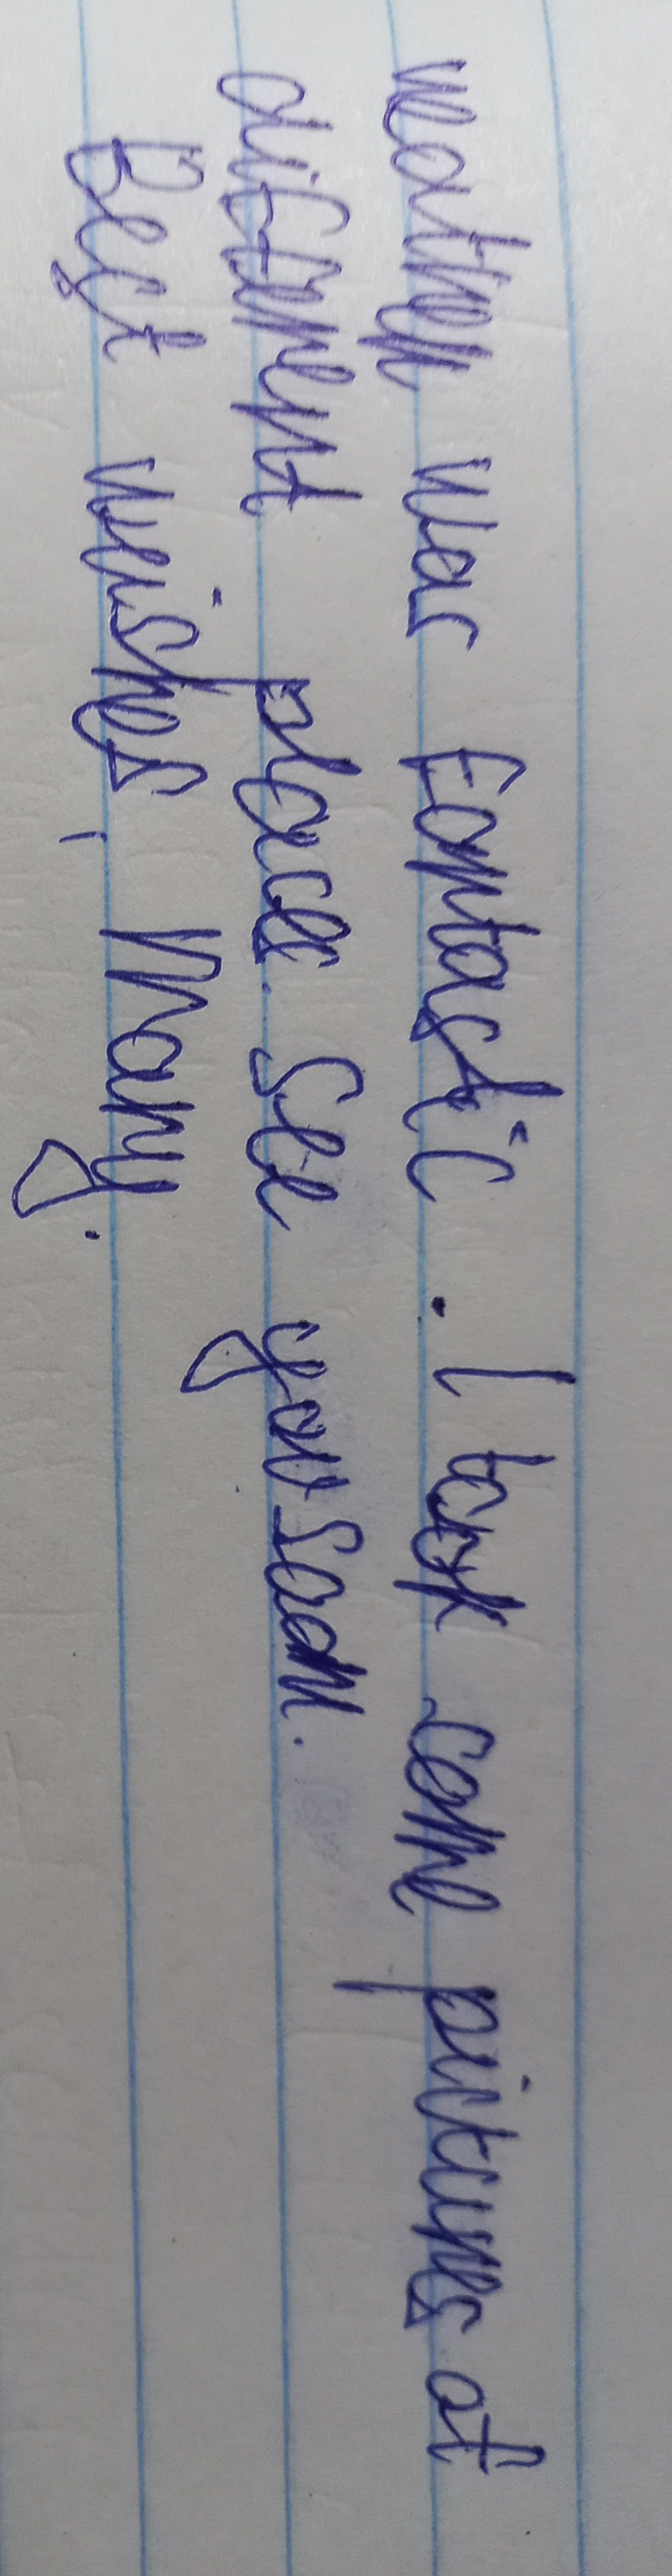 weather was fantastic. I took come pictures at
different places. See you soon.
Best weishes, Mary.